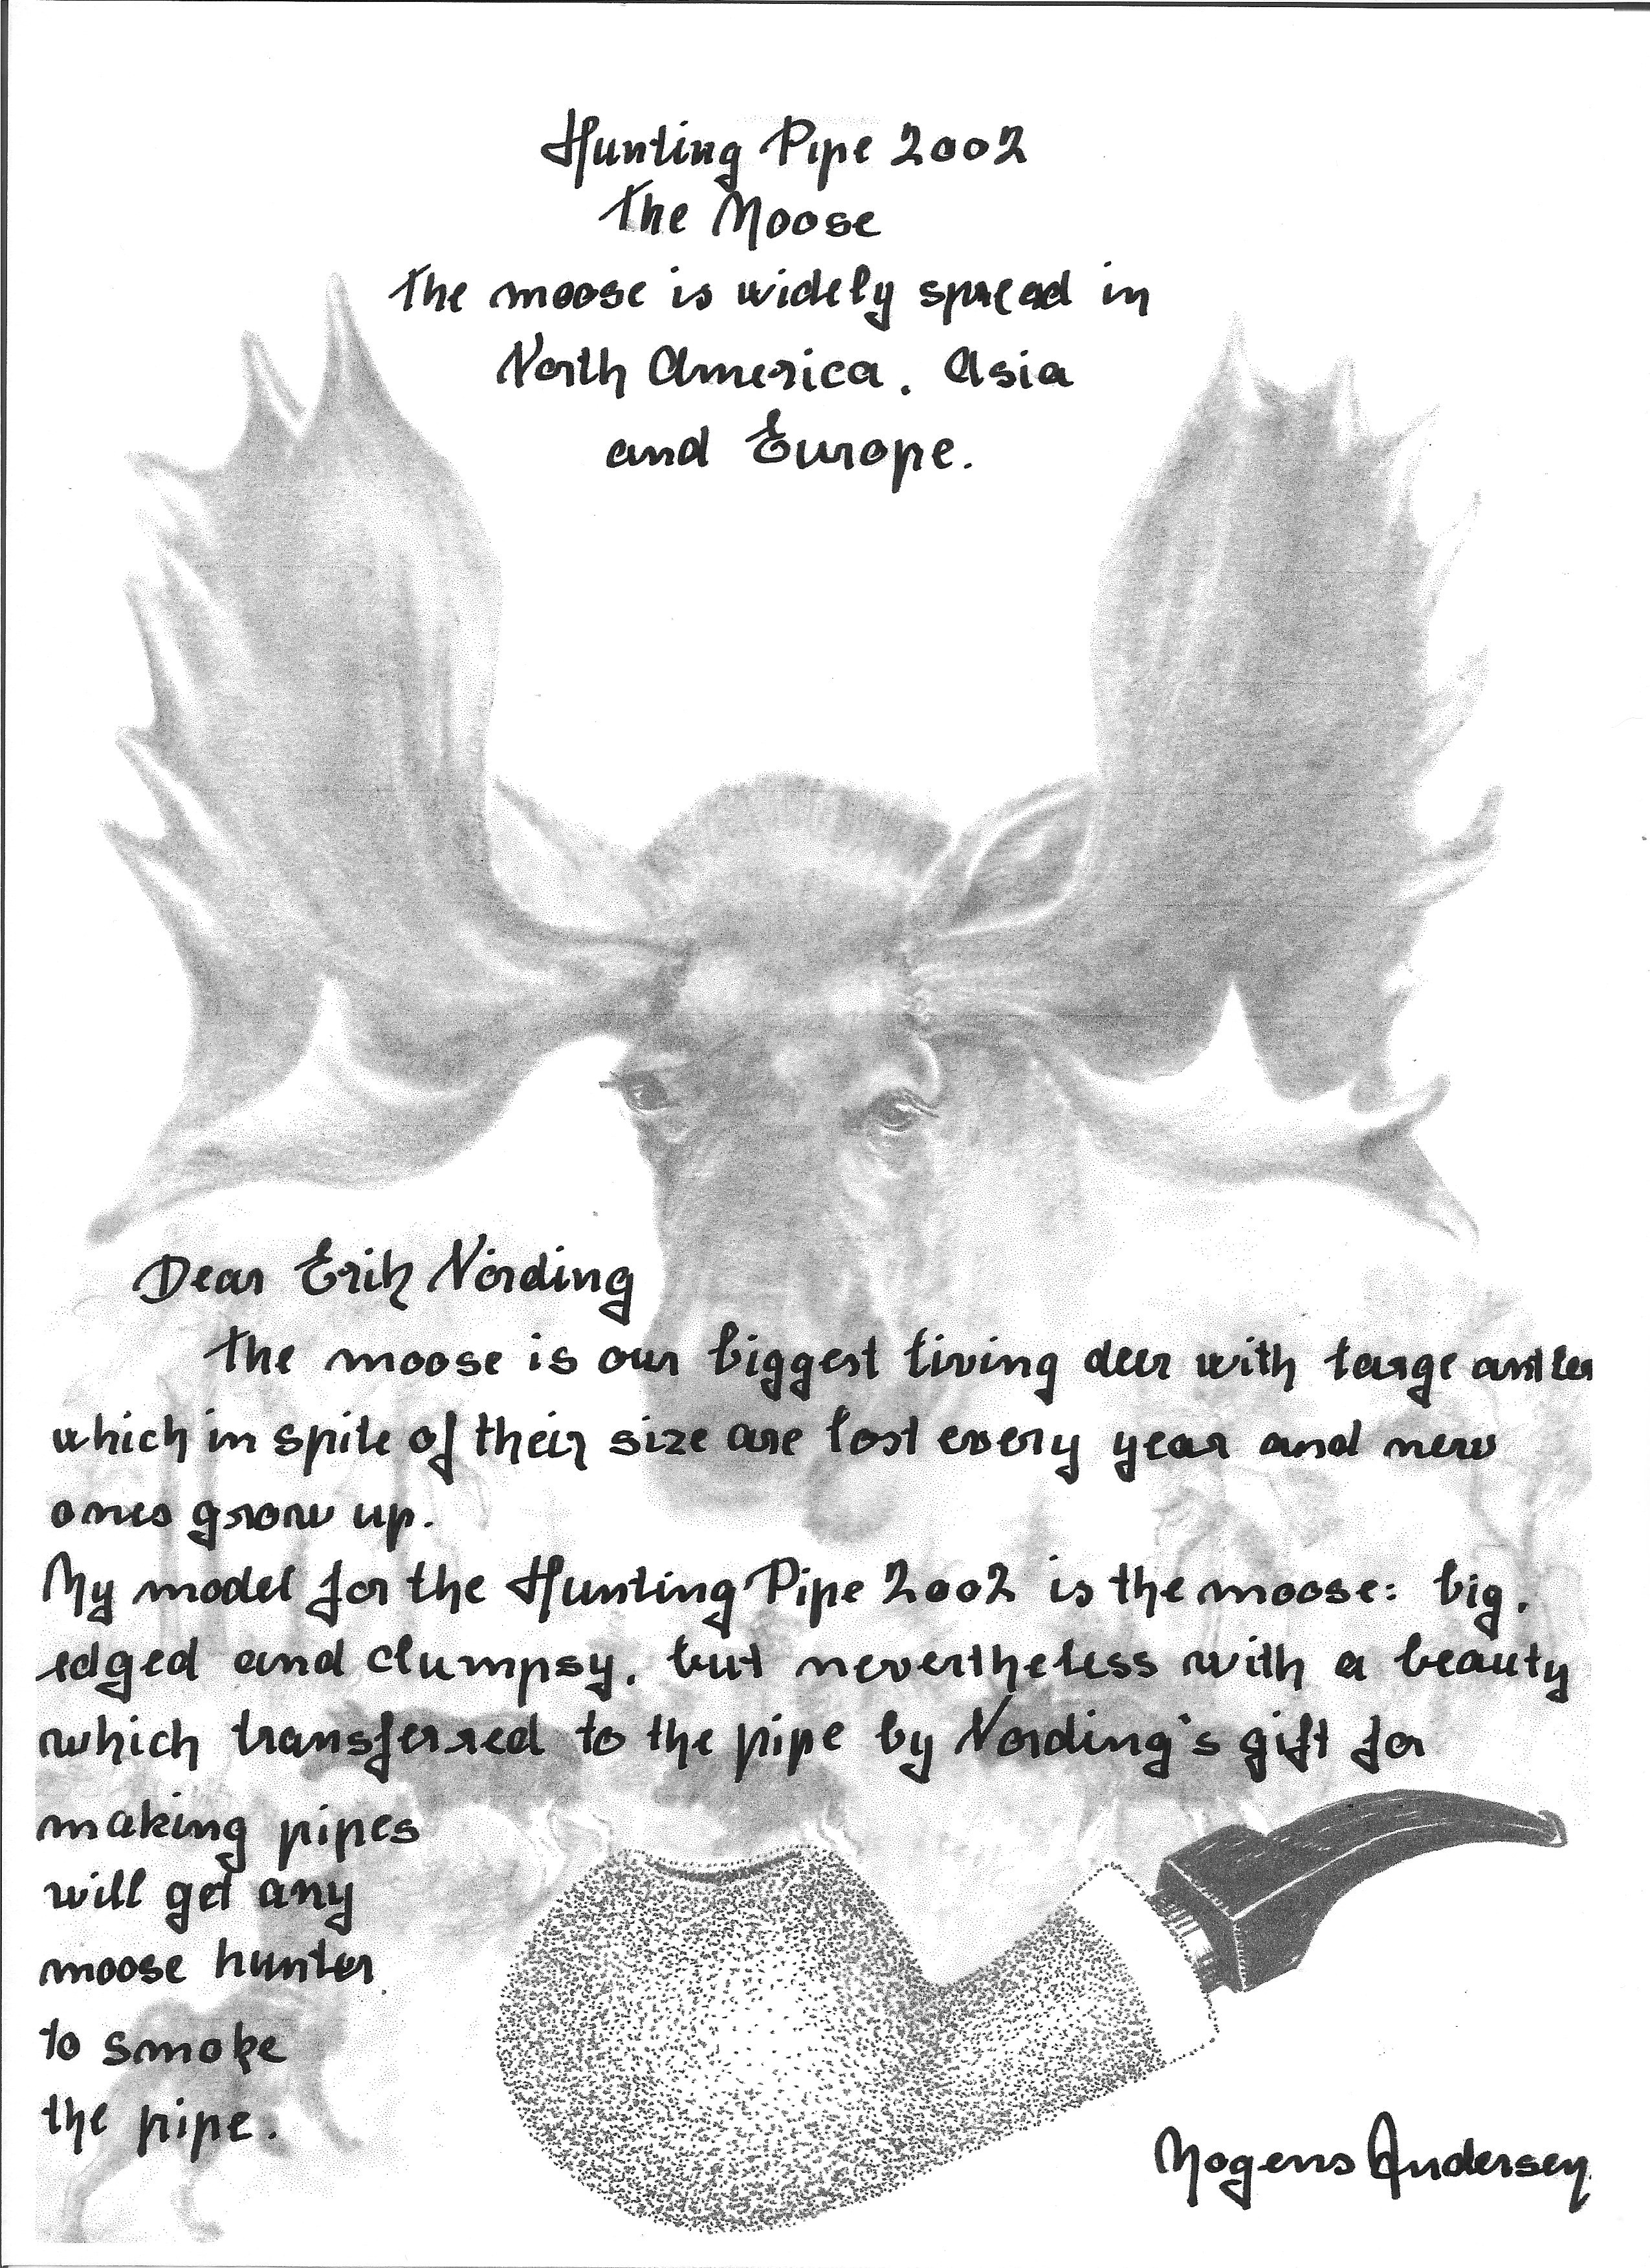 Hunting Pipe 2002
The Moose
The moose is widely spread in
North America, Asia
and Europe.
Dear Erik Nørding
The moose is our biggest living deer with large antler
which in spite of their size are lost every year and new
ones grow up.
My model for the Hunting Pipe 2002 is the moose: big,
edged and clumpsy, but nevertheless with a beauty
which transferred to the pipe by Nørding's gift for
making pipes
will get any
moose hunter
to smoke
the pipe.
Mogens Andersen